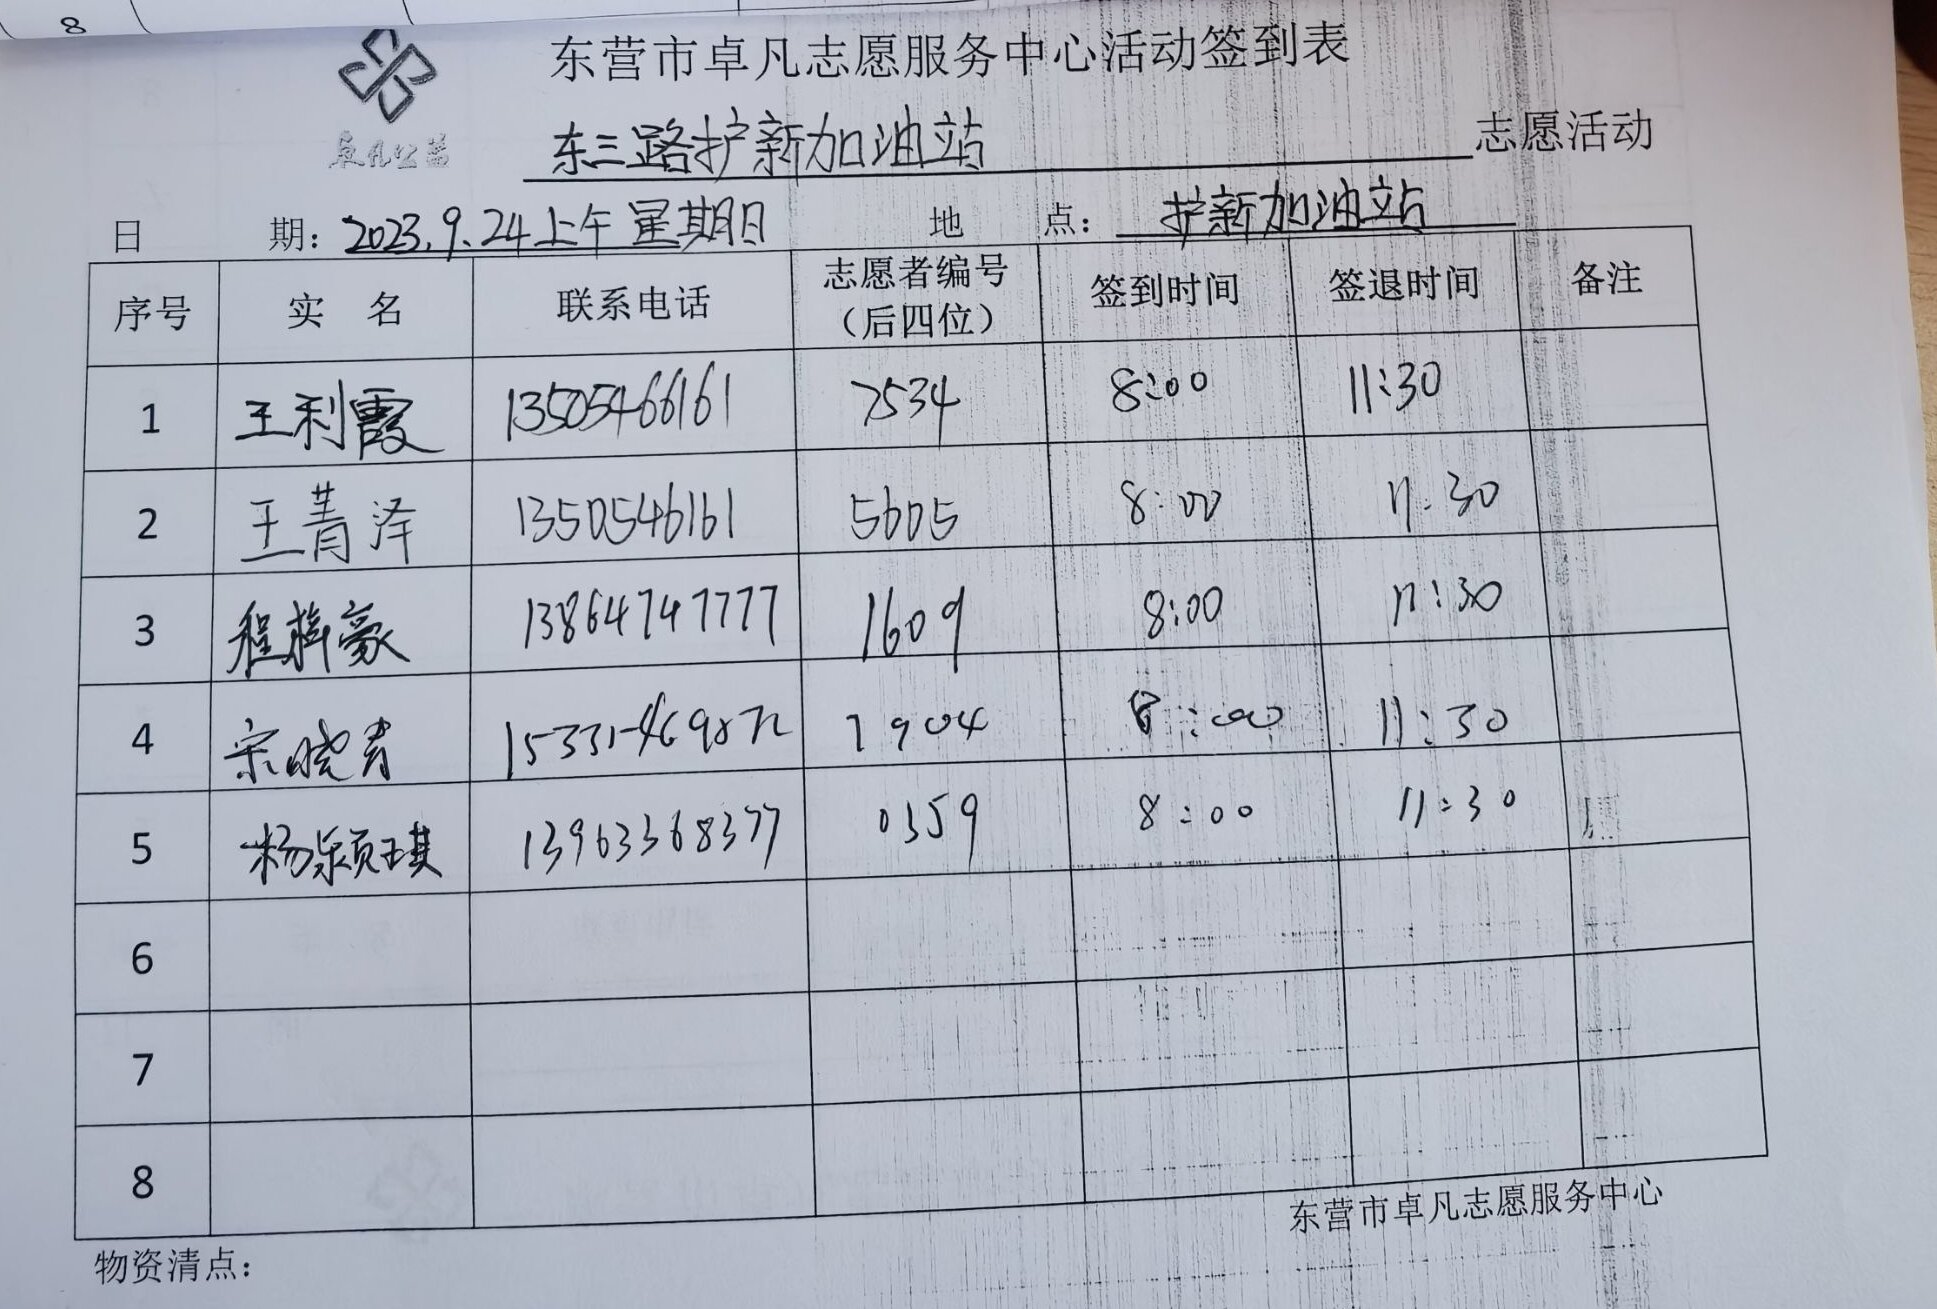 8
东营市卓凡志愿服务中心活动签到表
卓凡公益
东三路护新加油站 志愿活动
日 期: 2023.9.24上午 星期日 地 点: 护新加油站
序号 实 名 联系电话 志愿者编号（后四位） 签到时间 签退时间 备注
1 王利霞 13505466161 7534 8:00 11:30
2 王菁泽 1350546161 5605 8:00 11:30
3 程梓豪 13864747777 1609 8:00 11:30
4 宋晓青 7904 8:00 11:30
5 杨颍琪 13963368377 0359 8:00 11:30
6
7
8
东营市卓凡志愿服务中心
物资清点: